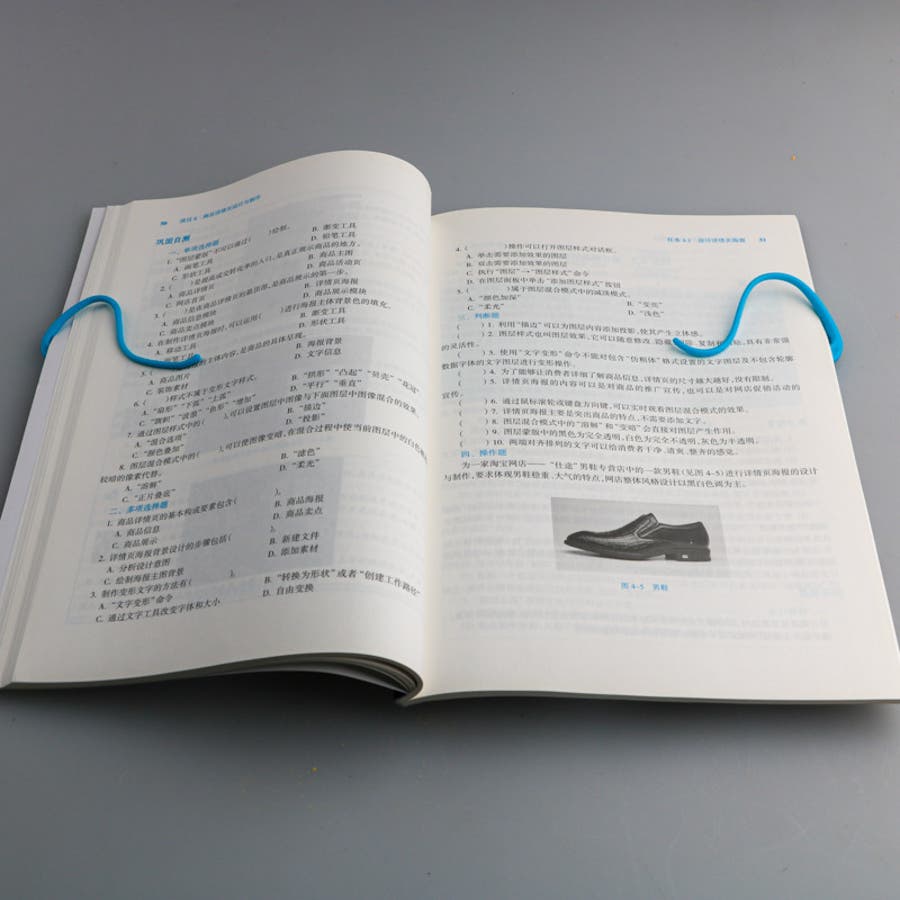 项目 4 商品详情页设计与制作
巩固自测
一、单项选择题
1. “图层蒙版”不可以通过( )绘制。
A. 画笔工具 B. 渐变工具
C. 形状工具 D. 铅笔工具
2. ( )是提高成交转化率的入口,是真正展示商品的地方。
A. 商品详情页 B. 商品主图
C. 网店首页 D. 商品活动页
3. ( )是在商品详情页的最顶部,是商品展示的第一步。
A. 商品信息模块 B. 详情页海报
C. 商品卖点模块 D. 商品展示模块
4. 在制作详情页海报时,可以运用( )进行海报主体背景色的填充。
A. 移动工具 B. 渐变工具
画笔工具 D. 形状工具
的主体内容,是商品的具体呈现。
A. 商品图片 B. 海报背景
C. 装饰素材 D. 文字信息
6. ( )样式不属于变形文字样式。
A. “扇形”“下弧”“上弧” B. “拱形”“凸起”“贝壳”“花冠”
C. “旗帜”“波浪”“鱼形”“增加” D. “平行”“垂直”
7. 通过图层样式中的( ),可以设置图层中图像与下面图层中图像混合的效果。
A. “混合选项” B. “描边”
C. “颜色叠加” D. “投影”
8. 图层混合模式中的( ),可以使图像变暗,在混合过程中使当前图层中的白色
较暗的像素代替。
A. “溶解” B. “滤色”
C. “正片叠底” D. “柔光”
二、多项选择题
1. 商品详情页的基本构成要素包含( )。
A. 商品信息 B. 商品海报
C. 商品展示 D. 商品卖点
2. 详情页海报背景设计的步骤包括( )。
A. 分析设计意图 B. 新建文件
C. 绘制海报主图背景 D. 添加素材
3. 制作变形文字的方法有( )。
A. “文字变形”命令 B. “转换为形状”或者“创建工作路径”
C. 通过文字工具改变字体和大小 D. 自由变换
任务 4.1 设计详情页海报
4. ( )操作可以打开图层样式对话框。
A. 单击需要添加效果的图层
B. 双击需要添加效果的图层
C. 执行“图层”→“图层样式”命令
D. 在图层面板中单击“添加图层样式”按钮
5. ( )属于图层混合模式中的减淡模式。
A. “颜色加深” B. “变亮”
C. “柔光” D. “浅色”
三、判断题
( ) 1. 利用“描边”可以为图层内容添加投影,使其产生立体感。
( ) 2. 图层样式也叫图层效果,它可以随意修改、隐藏 除、复制 除,具有非常强
的灵活性。
( ) 3. 使用“文字变形”命令不能对包含“仿粗体”格式设置的文字图层及不包含轮廓
数据字体的文字图层进行变形操作。
( ) 4. 为了能够让消费者详细了解商品信息,详情页的尺寸越大越好,没有限制。
( ) 5. 详情页海报的内容可以是对商品的推广宣传,也可以是对网店促销活动的
宣传。
( ) 6. 通过鼠标滚轮或键盘方向键,可以实时观看图层混合模式的效果。
( ) 7. 详情页海报主要是突出商品的特点,不需要添加文字。
( ) 8. 图层混合模式中的“溶解”和“变暗”会直接对图层产生作用。
( ) 9. 图层蒙版中的黑色为完全透明,白色为完全不透明,灰色为半透明。
( ) 10. 两端对齐排列的文字可以给消费者干净、清爽、整齐的感觉。
四、操作题
为一家淘宝网店——“仕途”男鞋专营店中的一款男鞋(见图 4-5)进行详情页海报的设计
与制作,要求体现男鞋稳重、大气的特点,网店整体风格设计以黑白色调为主。
图 4-5 男鞋